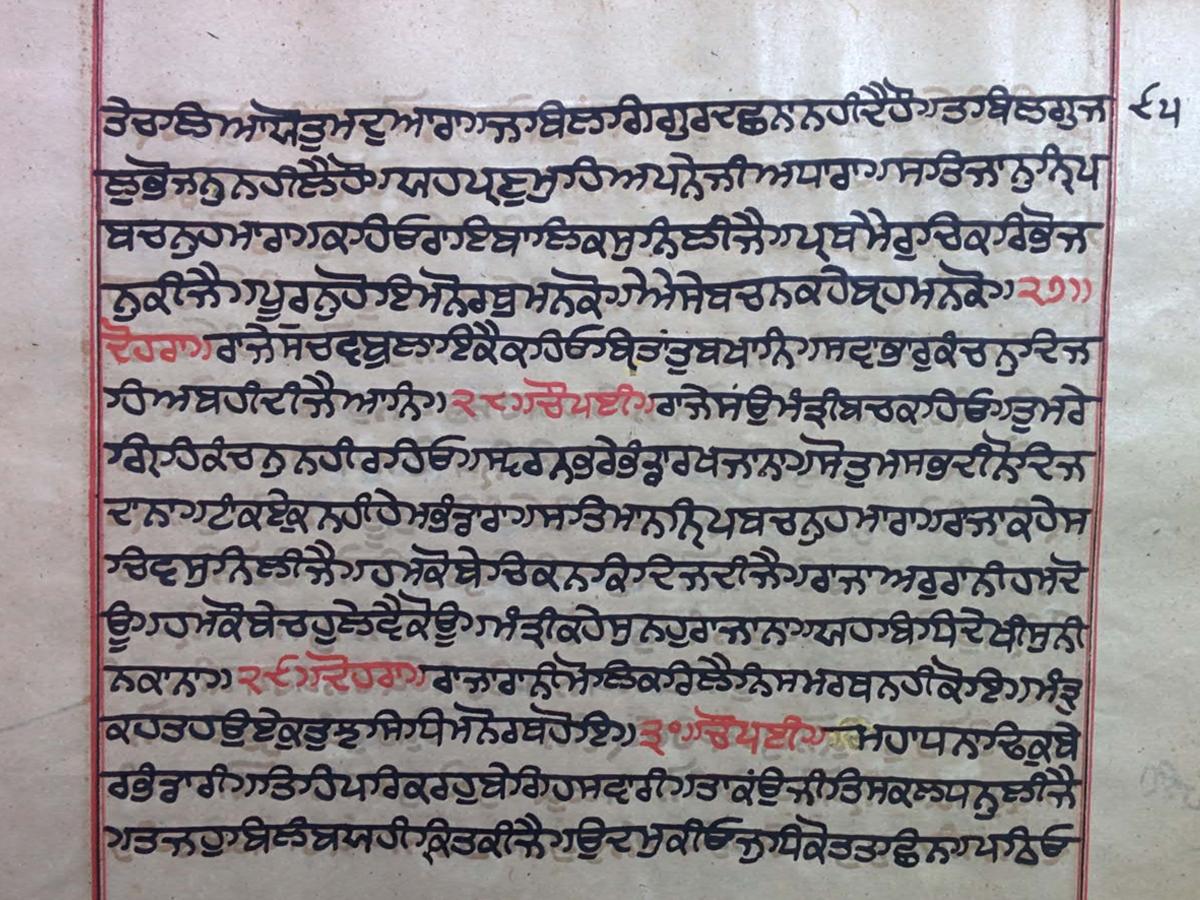 ਤੇਚਲਿਆਯੋਤੁਮਦੁਆਰਾ।ਜਾਬਿਲਗਿਗੁਰਦਛਨਾਨਹੀਦੈਹੋ।ਤਾਬਿਲਗੁਜ ੯੫
ਲੁਭੋਜਨੁਨਹੀਲੈਹੋ।ਯਹਪ੍ਰਣੁਮੁਹਿਅਪਨੇਜੀਅਧਾਰਾ।ਸਤਿਜਾਨੁਨ੍ਰਿਪ
ਬਚਨੁਹਮਾਰਾ।ਕਹਿਓਰਾਇਬਾਲਿਕਸੁਨਿਲੀਜੈ।ਪ੍ਰਥਮੈਰੁਚਿਕਰਿਭੋਜ
ਨੁਕੀਜੈ।ਪੂਰਨੁਹੋਇਮਨੋਰਥੁਮਨਕੋ।ਐਸੇਬਚਨਕਹੇਬ੍ਰਹਮਨਕੋ।੨੭॥
ਦੋਹਰਾ।ਰਾਜੇਸਚਵਬੁਲਾਇਕੈਕਹਿਓਬ੍ਰਿਤਾਂਤੁਬਖਾਨਿ।ਸਵਾਭਾਰੁਕੰਚਨੁਦਿਜ
ਹਿਅਬਹੀਦੀਜੈਆਨਿ।੨੮।ਚੌਪਈ।ਰਾਜੇਸੰਉਮੰਤ੍ਰੀਬਚਕਹਿਓ।ਤੁਮਰੇ
ਗ੍ਰਿਹਿਕੰਚਨੁਨਹੀਰਹਿਓ।ਸ੍ਵਰਨਭਰੇਭੰਡਾਰਖਜਾਨਾ।ਸੋਤੁਮਸਭਦੀਨੋਦਿਜ
ਦਾਨਾ।ਟੰਕਏਕੁਨਹੀਹੇਮਭੰਡਾਰਾ।ਸਤਿਮਾਨਨ੍ਰਿਪਬਚਨੁਹਮਾਰਾ।ਰਾਜਾਕਹੇਸ
ਚਿਵਸੁਨਿਲੀਜੈ।ਹਮਕੋਬੇਚਿਕਨਕਿਦਿਜਦੀਜੈ।ਰਾਜਾਅਰੁਰਾਨੀਹਮਦੋ
ਊ।ਹਮਕੌਬੇਚਹੁਲੇਵੈਕੋਊ।ਮੰਤ੍ਰੀਕਹੇਸੁਨਹੁਰਾਜਾਨਾ।ਯਹਬਿਧਿਦੇਖੀਸੁਨੀ
ਨਕਾਨਾ।੨੯।ਦੋਹਰਾ।ਰਾਜਾਰਾਨੀਮੋਲਿਕਰਿਲੈਨਿਸਮਰਥਨਹੀਕੋਇ।ਮੰਤ੍ਰੁ
ਕਹਤਹਉਏਕੁਤੁਝੁਸਿਧਿਮਨੋਰਥਹੋਇ।੩੦।ਚੌਪਈ।ਮਹਾਧਨਾਢਿਕੁਬੇ
ਰਭੰਡਾਰੀ।ਤਿਹਿਪਰਿਕਰਹੁਬੇਗਿਹਸਵਾਰੀ।ਤਾਕੰਉਜੀਤਿਸਕਲਧਨੁਲੀਜੈ
।ਤਜਹੁਬਿਲੰਬਯਹੀਕ੍ਰਿਤਕੀਜੈ।ਉਦਮੁਕੀਓਜੁਧਿਕੋਤਤਛਿਨ।ਧਨਿਓ